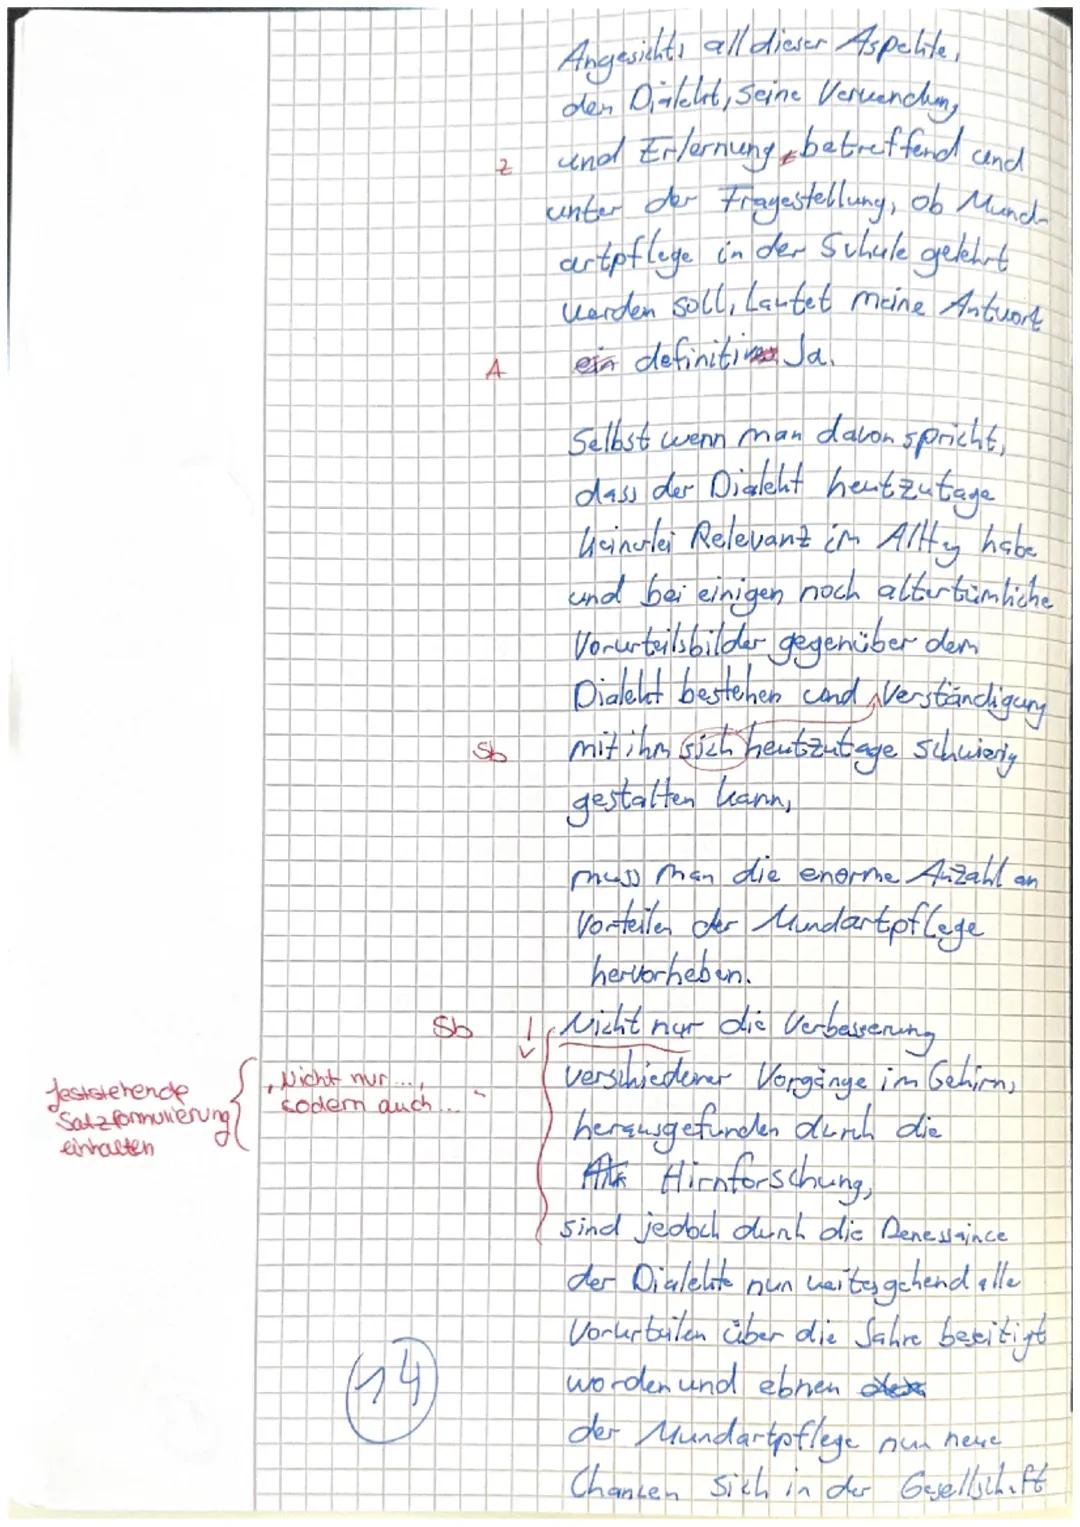 Angesichts all dieser Aspekte,
den Dialekt, seine Verwendung
z und Erlernung, betreffend und
unter der Fragestellung, ob Mund-
artpflege in der Schule gelehrt
werden soll, lautet meine Antwort
A ein definitives Ja.
Selbst wenn man davon spricht,
dass der Dialekt heutzutage
keinerlei Relevanz im Alltag habe
und bei einigen noch altertümliche
Vorurteilsbilder gegenüber dem
Dialekt bestehen und Verständigung
Sb mit ihm sich heutzutage schwierig
gestalten kann,
muss man die enorme Anzahl an
Vorteilen der Mundartpflege
hervorheben.
Sb ! Nicht nur die Verbesserung
verschiedener Vorgänge im Gehirn,
feststehende
Satzformulierung
einhalten
„Nicht nur...,
sodern auch..."
herausgefunden durch die
Hirnforschung,
sind jedoch durch die Renessaince
der Dialekte nun weitesgehend alle
Vorurteilen über die Jahre beseitigt
worden und ebnen
14
der Mundartpflege nun neue
Chancen sich in der Gesellschaft